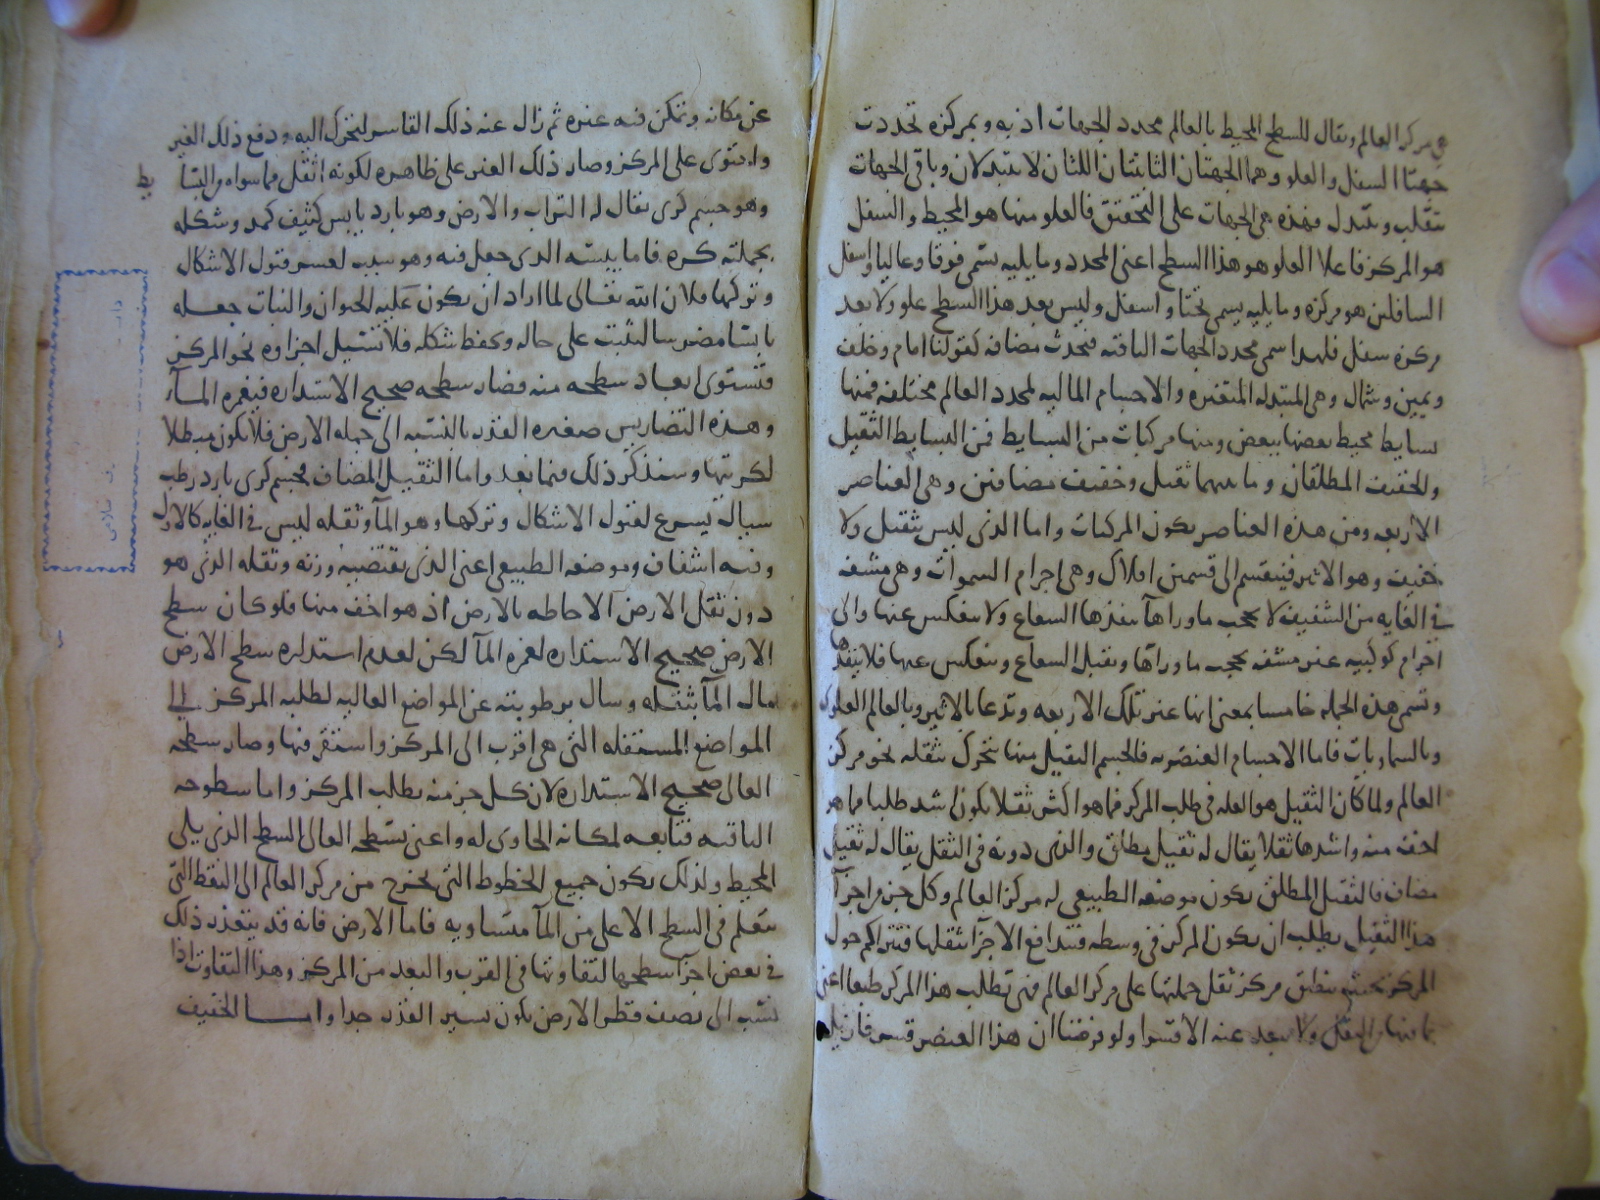 هي مركز العالم ويقال للسطح المحيط بالعالم محدد الجهات اذ به وبمركزه تحددت
جهتا السفل والعلو وهما الجهتان الثابتتان اللتان لا تتبدلان وباقي الجهات
تتقلب وتتبدل فهذه هي الجهات على التحقيق فالعلو منها هو المحيط والسفل
هو المركز فاعلا العلو هو هذا السطح اعني المحدد وما يليه يسمى فوقا وعاليا واسفل
السافلين هو مركزه وما يليه يسمى تحتا واسفل وليس بعد هذا السطح علو ولا بعد
مركزه سفل فلهذا سمي محدد الجهات الباقية فتحدث مضافة كقولنا امام وخلف
ويمين وشمال وهي المتبدلة المتغيرة والاجسام المالية لمحدد العالم مختلفة فمنها
بسايط محيط بعضها ببعض ومنها مركبات من البسايط فمن البسايط الثقيل
والخفيف المطلقان وما بينهما ثقيل وخفيف مضافين وهي العناصر
الاربعة ومن هذه العناصر يكون المركبات واما الذي ليس بثقيل ولا
خفيف وهو الاثير فينقسم الى قسمين افلاك وهي اجرام السموات وهي مشفة
في الغاية من الشفيف لا يحجب ما وراها ينفذها الشعاع ولا ينعكس عنها والى
اجرام كوكبية غير مشفة يحجب ما وراها وتقبل الشعاع وينعكس عنها فلا ينفذها
وتسمى هذه الجملة خامسا بمعنى انها غير تلك الاربعة وتدعا بالاثير وبالعالم العلوي
وبالسماويات فاما الاجسام العنصرية فالجسم الثقيل منها يتحرك بثقله نحو مركز
العالم ولما كان الثقيل هو العلة في طلب المركز فما هو اكثر ثقلا يكون اشد طلبا مما هو
اخف منه واشدها ثقلا يقال له ثقيل مطلق والذي دونه في الثقل يقال له ثقيل
مضاف فالثقيل المطلق يكون موضعه الطبيعي له مركز العالم وكل جزء من اجزآ
هذا الثقيل يطلب ان يكون المركز في وسطه فتتدافع الاجزآ بثقلها فتتراكم حول
المركز بحيث ينطبق مركز ثقل جملتها على مركز العالم فهي تطلب هذا المركز طبعا اعني
بما فيها من الثقل ولا تبعد عنه الا قسرا ولو فرضنا ان هذا العنصر قسر فازيل
عن مكانه وتمكن فيه غيره ثم زال عنه ذلك القاسر لتحرك اليه ودفع ذلك الغير
واحتوى على المركز وصار ذلك الغير على ظاهره لكونه اثقل مما سواه من البسا
يط
وهو جسم كري يقال له التراب والارض وهو بارد يابس كثيف كمد وشكله
بجملته كره فاما يبسه الذي جعل فيه وهو سبب لعسر قبول الاشكال
وتركها فلان الله تعالى لما اراد ان يكون عليه الحيوان والنبات جعله
يابسا مضرسا لتثبت على حاله وتحفظ شكله فلا تسيل اجزاوه نحو المركز
فتستوي ابعاد سطحه منه فصار سطحه صحيح الاستداره فيغمره المآ
وهذه التضاريس صغيره القدر بالنسبة الى جملة الارض فلا يكون مبطلا
لكريتها وسنذكر ذلك فيما بعد واما الثقيل المضاف فجسم كري بارد رطب
سيال يسرع لقبول الاشكال وتركها وهو المآ وثقله ليس في الغاية كالاول
وفيه اشفاف وموضعه الطبيعي اعني الذي يقتضيه وزنه وثقله الذي هو
دون ثقل الارض الاحاطة بالارض اذ هو اخف منها فلو كان سطح
الارض صحيح الاستداره لغمره المآ لكن لعدم استداره سطح الارض
مال المآ بثقله وسال برطوبته عن المواضع العالية لطلبه المركز الى
المواضع المستفله التي هي اقرب الى المركز واستقر فيها وصار سطحه
العالي صحيح الاستداره لان كل جزء منه يطلب المركز واما سطوحه
الباقية فتابعه لمكانه الحاوي له واعني بسطحه العالي السطح الذي يلي
المحيط ولذلك يكون جميع الخطوط التي تخرج من مركز العالم الى النقط التي
تتعلم في السطح الاعلى من المآ متساويه فاما الارض فانه قد يتعذر ذلك
في بعض اجزآ سطحها لتفاوتها في القرب والبعد من المركز وهذا التفاوت اذا
نسب الى نصف قطر الارض يكون يسير القدر جدا واما الخفيف